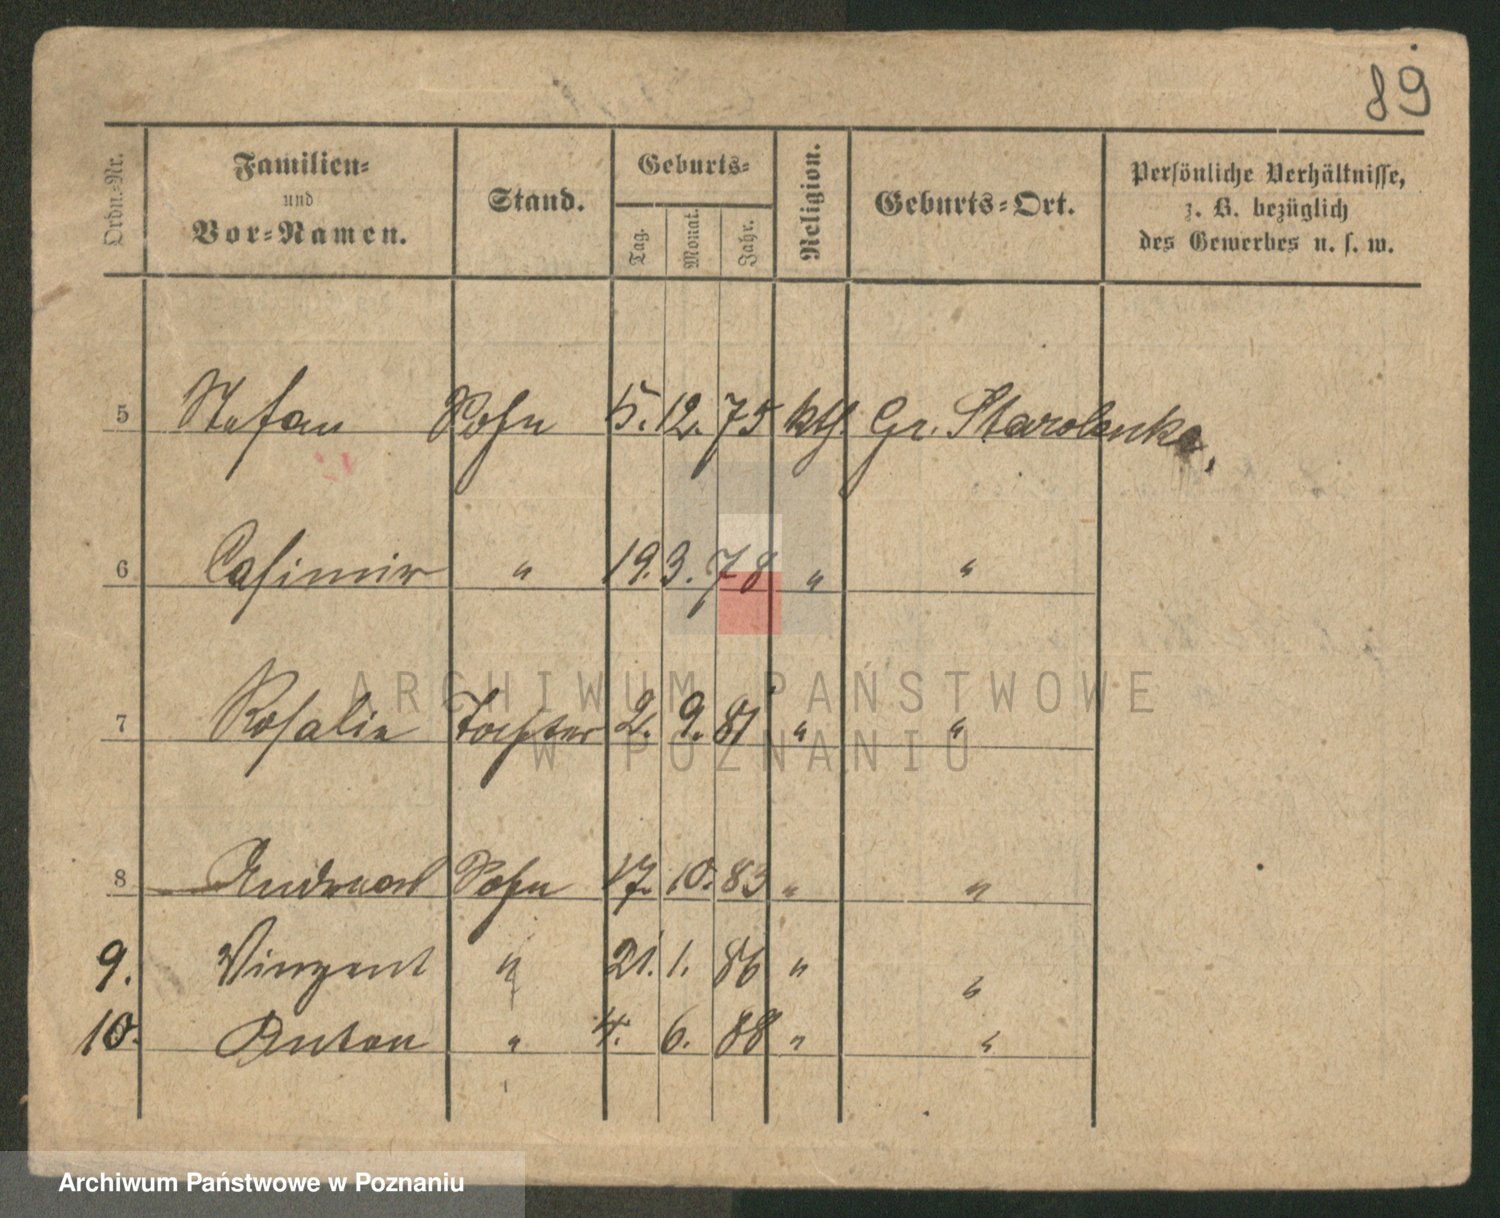 89
Ordn.-Nr. Familien- und Vor-Namen. Stand. Geburts- Tag. Monat. Jahr. Religion. Geburts-Ort. Persönliche Verhältnisse, z. B. bezüglich des Gewerbes u. s. w.
5 Stefan Sohn 15. 12. 75 kth. Gr. Starolenka,
6 Casimir " 19. 3. 78 " "
7 Rosalie Tochter 2. 9. 81 " "
8 Andreas Sohn 17. 10. 83 " "
9. Vinzent " 21. 1. 86 " "
10. Anton " 4. 6. 88 " "
ARCHIWUM PAŃSTWOWE
W POZNANIU
Archiwum Państwowe w Poznaniu